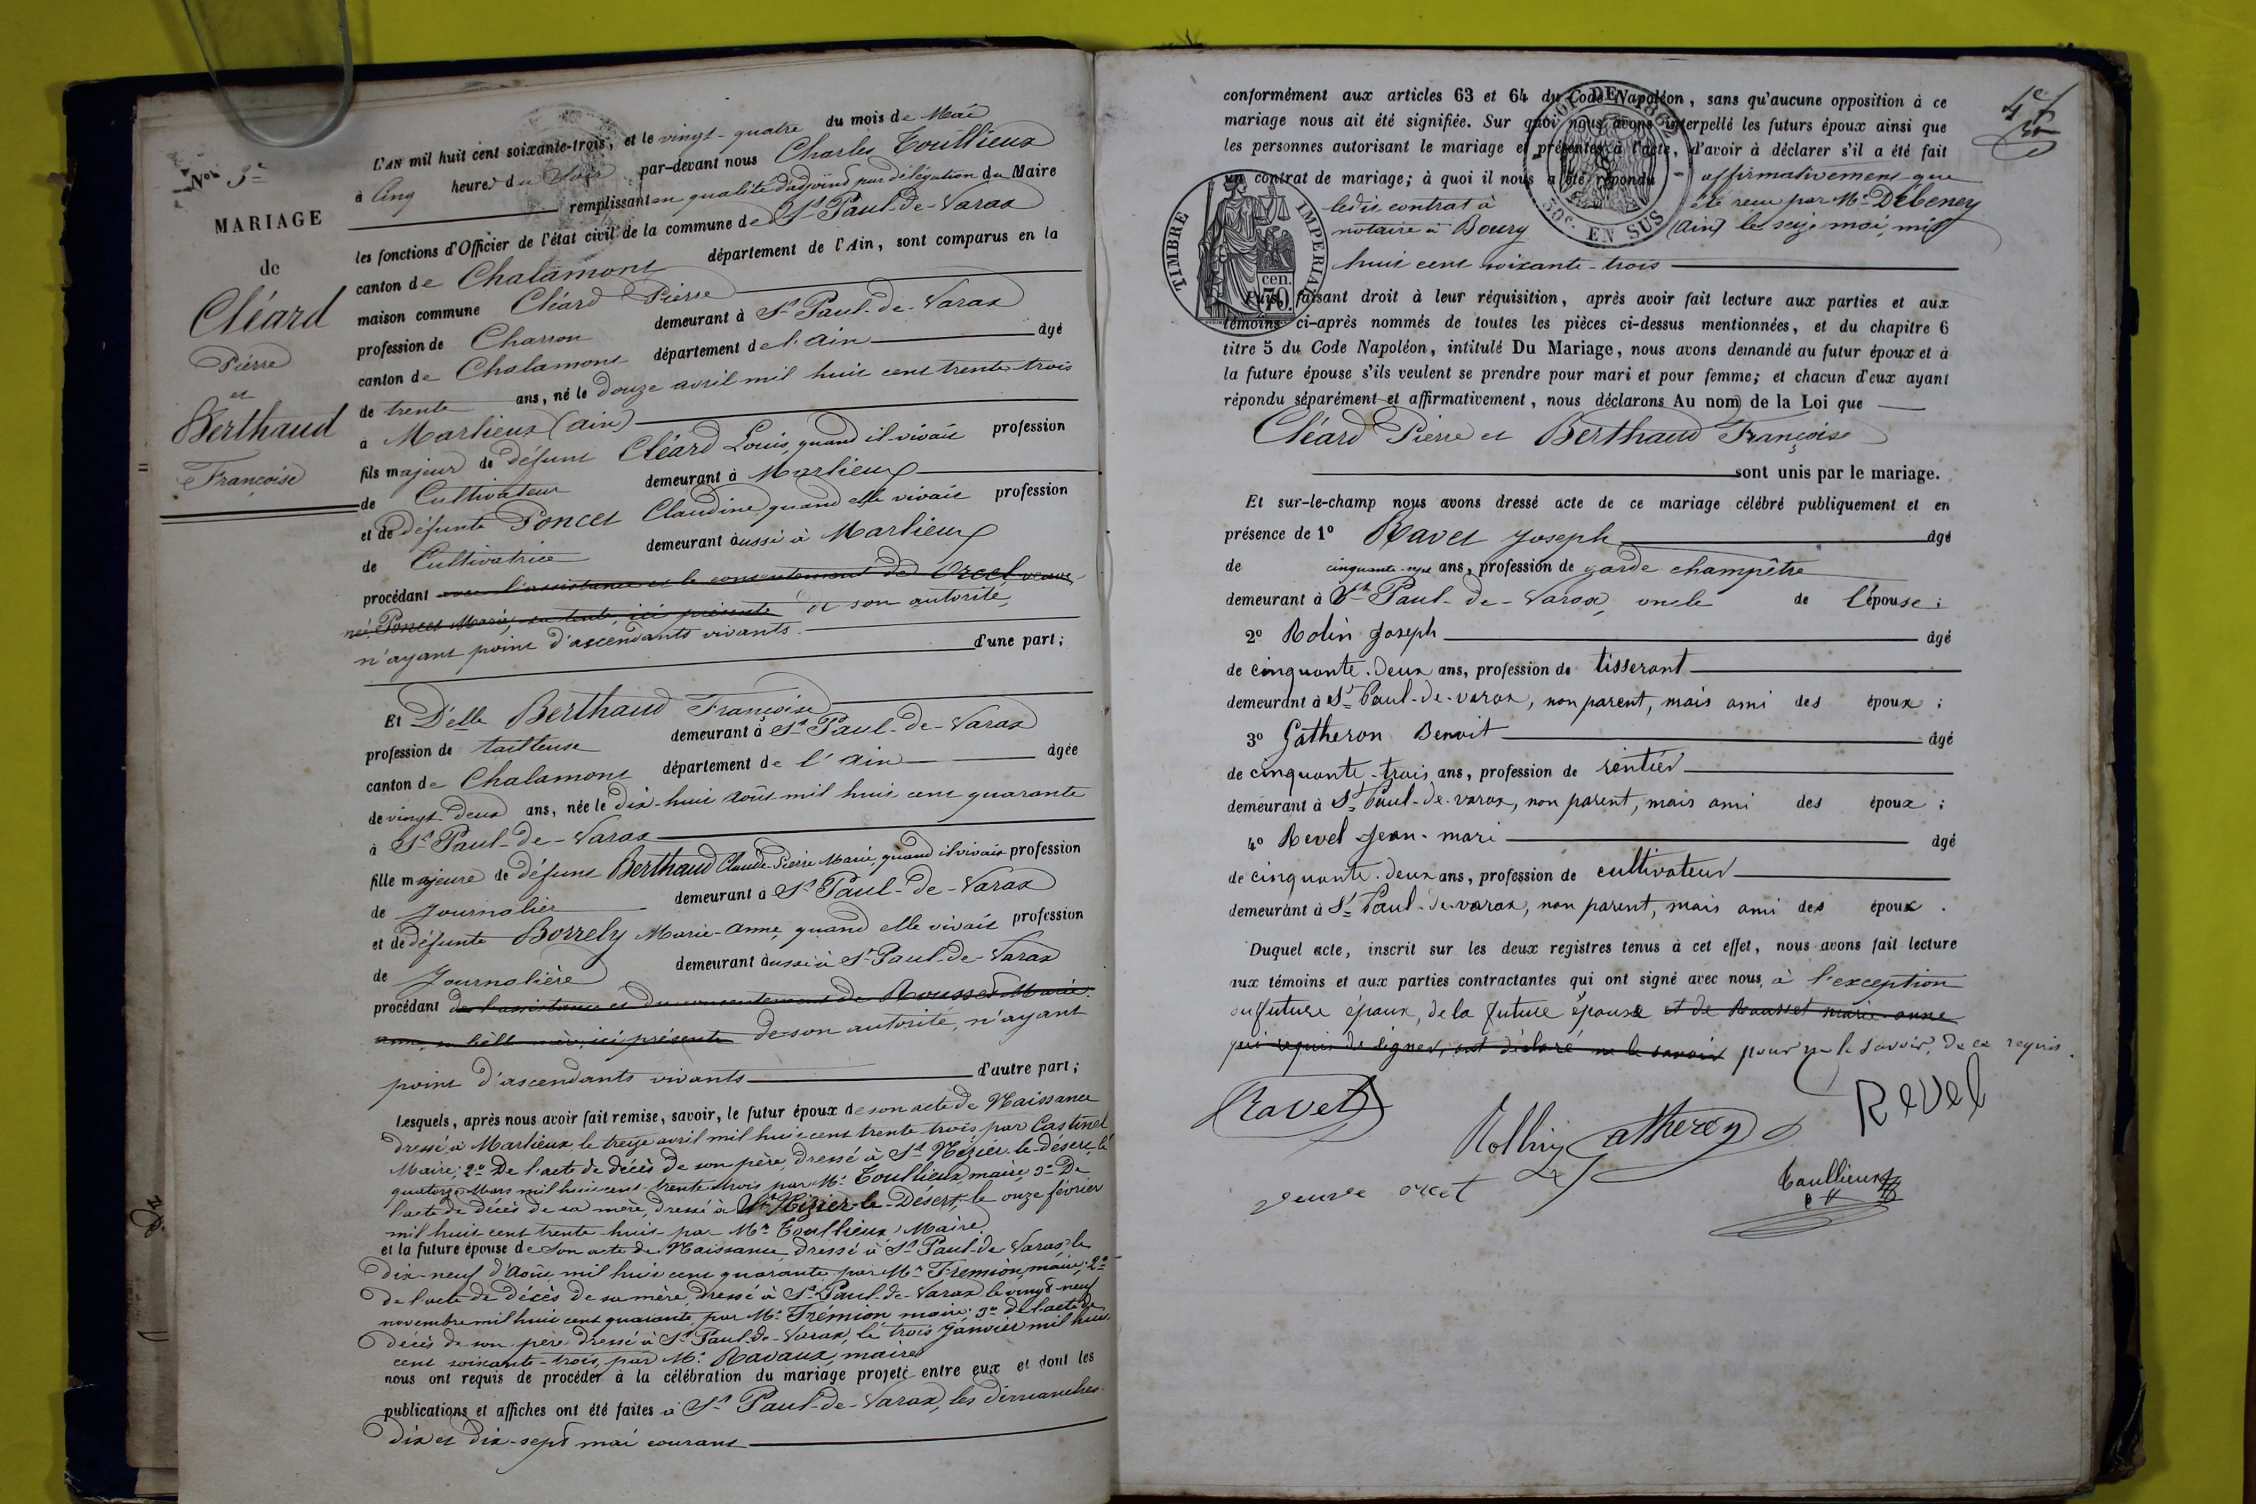 Nos 3e
MARIAGE
de
Cléard
Pierre
et
Berthaud
Françoise
L'AN mil huit cent soixante-trois, et le vingt-quatre du mois de Mai
à Cinq heures du Soir par-devant nous Charles Toullieux
remplissant en qualité d'adjoint par délégation du Maire
les fonctions d'Officier de l'état civil de la commune de St Paul-de-Varax
canton de Chalamont département de l'Ain, sont comparus en la
maison commune Cléard Pierre
profession de Charron demeurant à St Paul-de-Varax
canton de Chalamont département de l'Ain âgé
de trente ans, né le douze avril mil huit cent trente trois
à Marlieux (ain)
fils majeur de défunt Cléard Louis, quand il vivait profession
de Cultivateur demeurant à Marlieux
et de défunte Poncet Claudine, quand elle vivait profession
de Cultivatrice demeurant aussi à Marlieux
procédant avec l'assistance et le consentement de Orcel veuve
née Poncet Marie, sa tante, ici présente de son autorité,
n'ayant point d'ascendants vivants d'une part;
Et Delle Berthaud Françoise
profession de tailleuse demeurant à St Paul-de-Varax
canton de Chalamont département de l'Ain âgée
de vingt-deux ans, née le dix-huit août mil huit cent quarante
à St Paul-de-Varax
fille majeure de défunt Berthaud Claude-Pierre Marie, quand il vivait profession
de Journalier demeurant à St Paul-de-Varax
et de défunte Borrely Marie-Anne, quand elle vivait profession
de Journalière demeurant aussi à St Paul-de-Varax
procédant de l'assistance et du consentement de Rousset Marie
anne, sa belle mère, ici présente de son autorité, n'ayant
point d'ascendants vivants d'autre part;
Lesquels, après nous avoir fait remise, savoir, le futur époux de son acte de Naissance
dressé à Marlieux le treize avril mil huit cent trente trois par Castinel
Maire; 2o De l'acte de décès de son père, dressé à St Nizier-le-désert, le
quatorze Mars mil huit cent trente trois par Mr Toullieux maire; 3o De
l'acte de décès de sa mère, dressé à St Nizier-le-Desert, le onze février
mil huit cent trente-huit par Mr Toullieux, Maire
et la future épouse de Son acte de Naissance dressé à St Paul-de-Varax le
Dix-neuf d'août mil huit cent quarante par Mr Fremion, maire; 2o
De l'acte de décès de sa mère, dressé à St Paul-de-Varax le vingt-neuf
novembre mil huit cent quarante, par Mr Frémion maire; 3o de l'acte de
Décès de son père dressé à St Paul-de-Varax, le trois Janvier mil huit
cent soixante-trois, par Mr Ravaux, maire
nous ont requis de procéder à la célébration du mariage projeté entre eux et dont les
publications et affiches ont été faites à St Paul-de-Varax, les dimanches
dix et dix-sept mai courant
conformément aux articles 63 et 64 du Code Napoléon, sans qu'aucune opposition à ce
mariage nous ait été signifiée. Sur quoi nous avons interpellé les futurs époux ainsi que
les personnes autorisant le mariage et présentes à l'acte, d'avoir à déclarer s'il a été fait
un contrat de mariage; à quoi il nous a été répondu affirmativement que
ledit contrat a été reçu par Me Débeney
notaire à Bourg (Ain) le seize mai, mil
huit cent soixante-trois
LOI DE 1862
50c. EN SUS
TIMBRE IMPERIAL
70 cen.
Puis, faisant droit à leur réquisition, après avoir fait lecture aux parties et aux
témoins ci-après nommés de toutes les pièces ci-dessus mentionnées, et du chapitre 6
titre 5 du Code Napoléon, intitulé Du Mariage, nous avons demandé au futur époux et à
la future épouse s'ils veulent se prendre pour mari et pour femme; et chacun d'eux ayant
répondu séparément et affirmativement, nous déclarons Au nom de la Loi que
Cléard Pierre et Berthaud Françoise
sont unis par le mariage.
Et sur-le-champ nous avons dressé acte de ce mariage célébré publiquement et en
présence de 1o Ravet Joseph âgé
de cinquante-sept ans, profession de garde champêtre
demeurant à St Paul-de-Varax, oncle de l'épouse;
2o Rolin Joseph âgé
de cinquante-deux ans, profession de tisserant
demeurant à St Paul-de-varax, non parent, mais ami des époux;
3o Gatheron Benoit âgé
de cinquante-trois ans, profession de rentier
demeurant à St Paul-de-varax, non parent, mais ami des époux;
4o Revel Jean-mari âgé
de cinquante-deux ans, profession de cultivateur
demeurant à St Paul-de-varax, non parent, mais ami des époux.
Duquel acte, inscrit sur les deux registres tenus à cet effet, nous avons fait lecture
aux témoins et aux parties contractantes qui ont signé avec nous, à l'exception
du future époux, de la future épouse et de Rousset marie-anne
qui requis de signer, ont déclaré ne le savoir pour ne le savoir, de ce requis.
Ravet
Rollin
Gatheron
Revel
veuve orcet
Toullieux